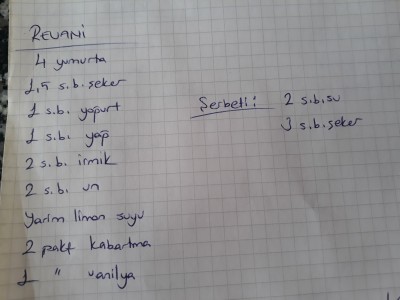 REVANİ
4 yumurta
1,5 s.b. şeker
1 s.b. yoğurt
1 s.b. yağ
2 s.b. irmik
2 s.b. un
Yarım limon suyu
2 pakt kabartma
1 " vanilya
Şerbeti: 2 s.b. su
3 s.b. şeker